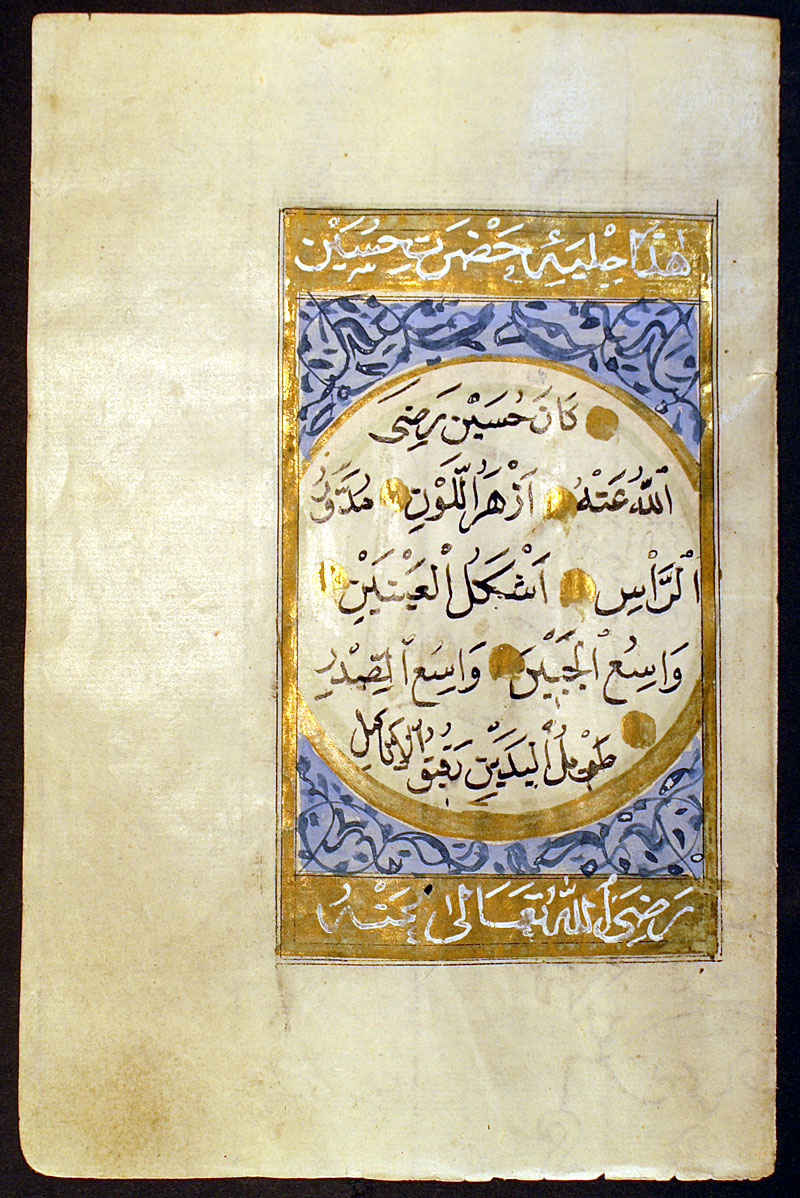 هٰذَا حِلْيَهِٔ حَضْرَتِ حُسَيْن
كَانَ حُسَيْن رَضِىَ
ٱللّٰهُ عَنْهُ اَزْهَرُ ٱللَّوْنِ مُدَوَّرُ
ٱلرَّأْسِ اَشْكَلُ ٱلْعَيْنَيْنِ
وَاسِعُ ٱلْجَبِيْنِ وَاسِعُ ٱلصَّدْرِ
طَوِيلُ ٱلْيَدَيْنِ رَقِيقُ ٱلْاَنَامِلِ
رَضِىَ ٱللّٰهُ تَعَالٰى عَنْهُ